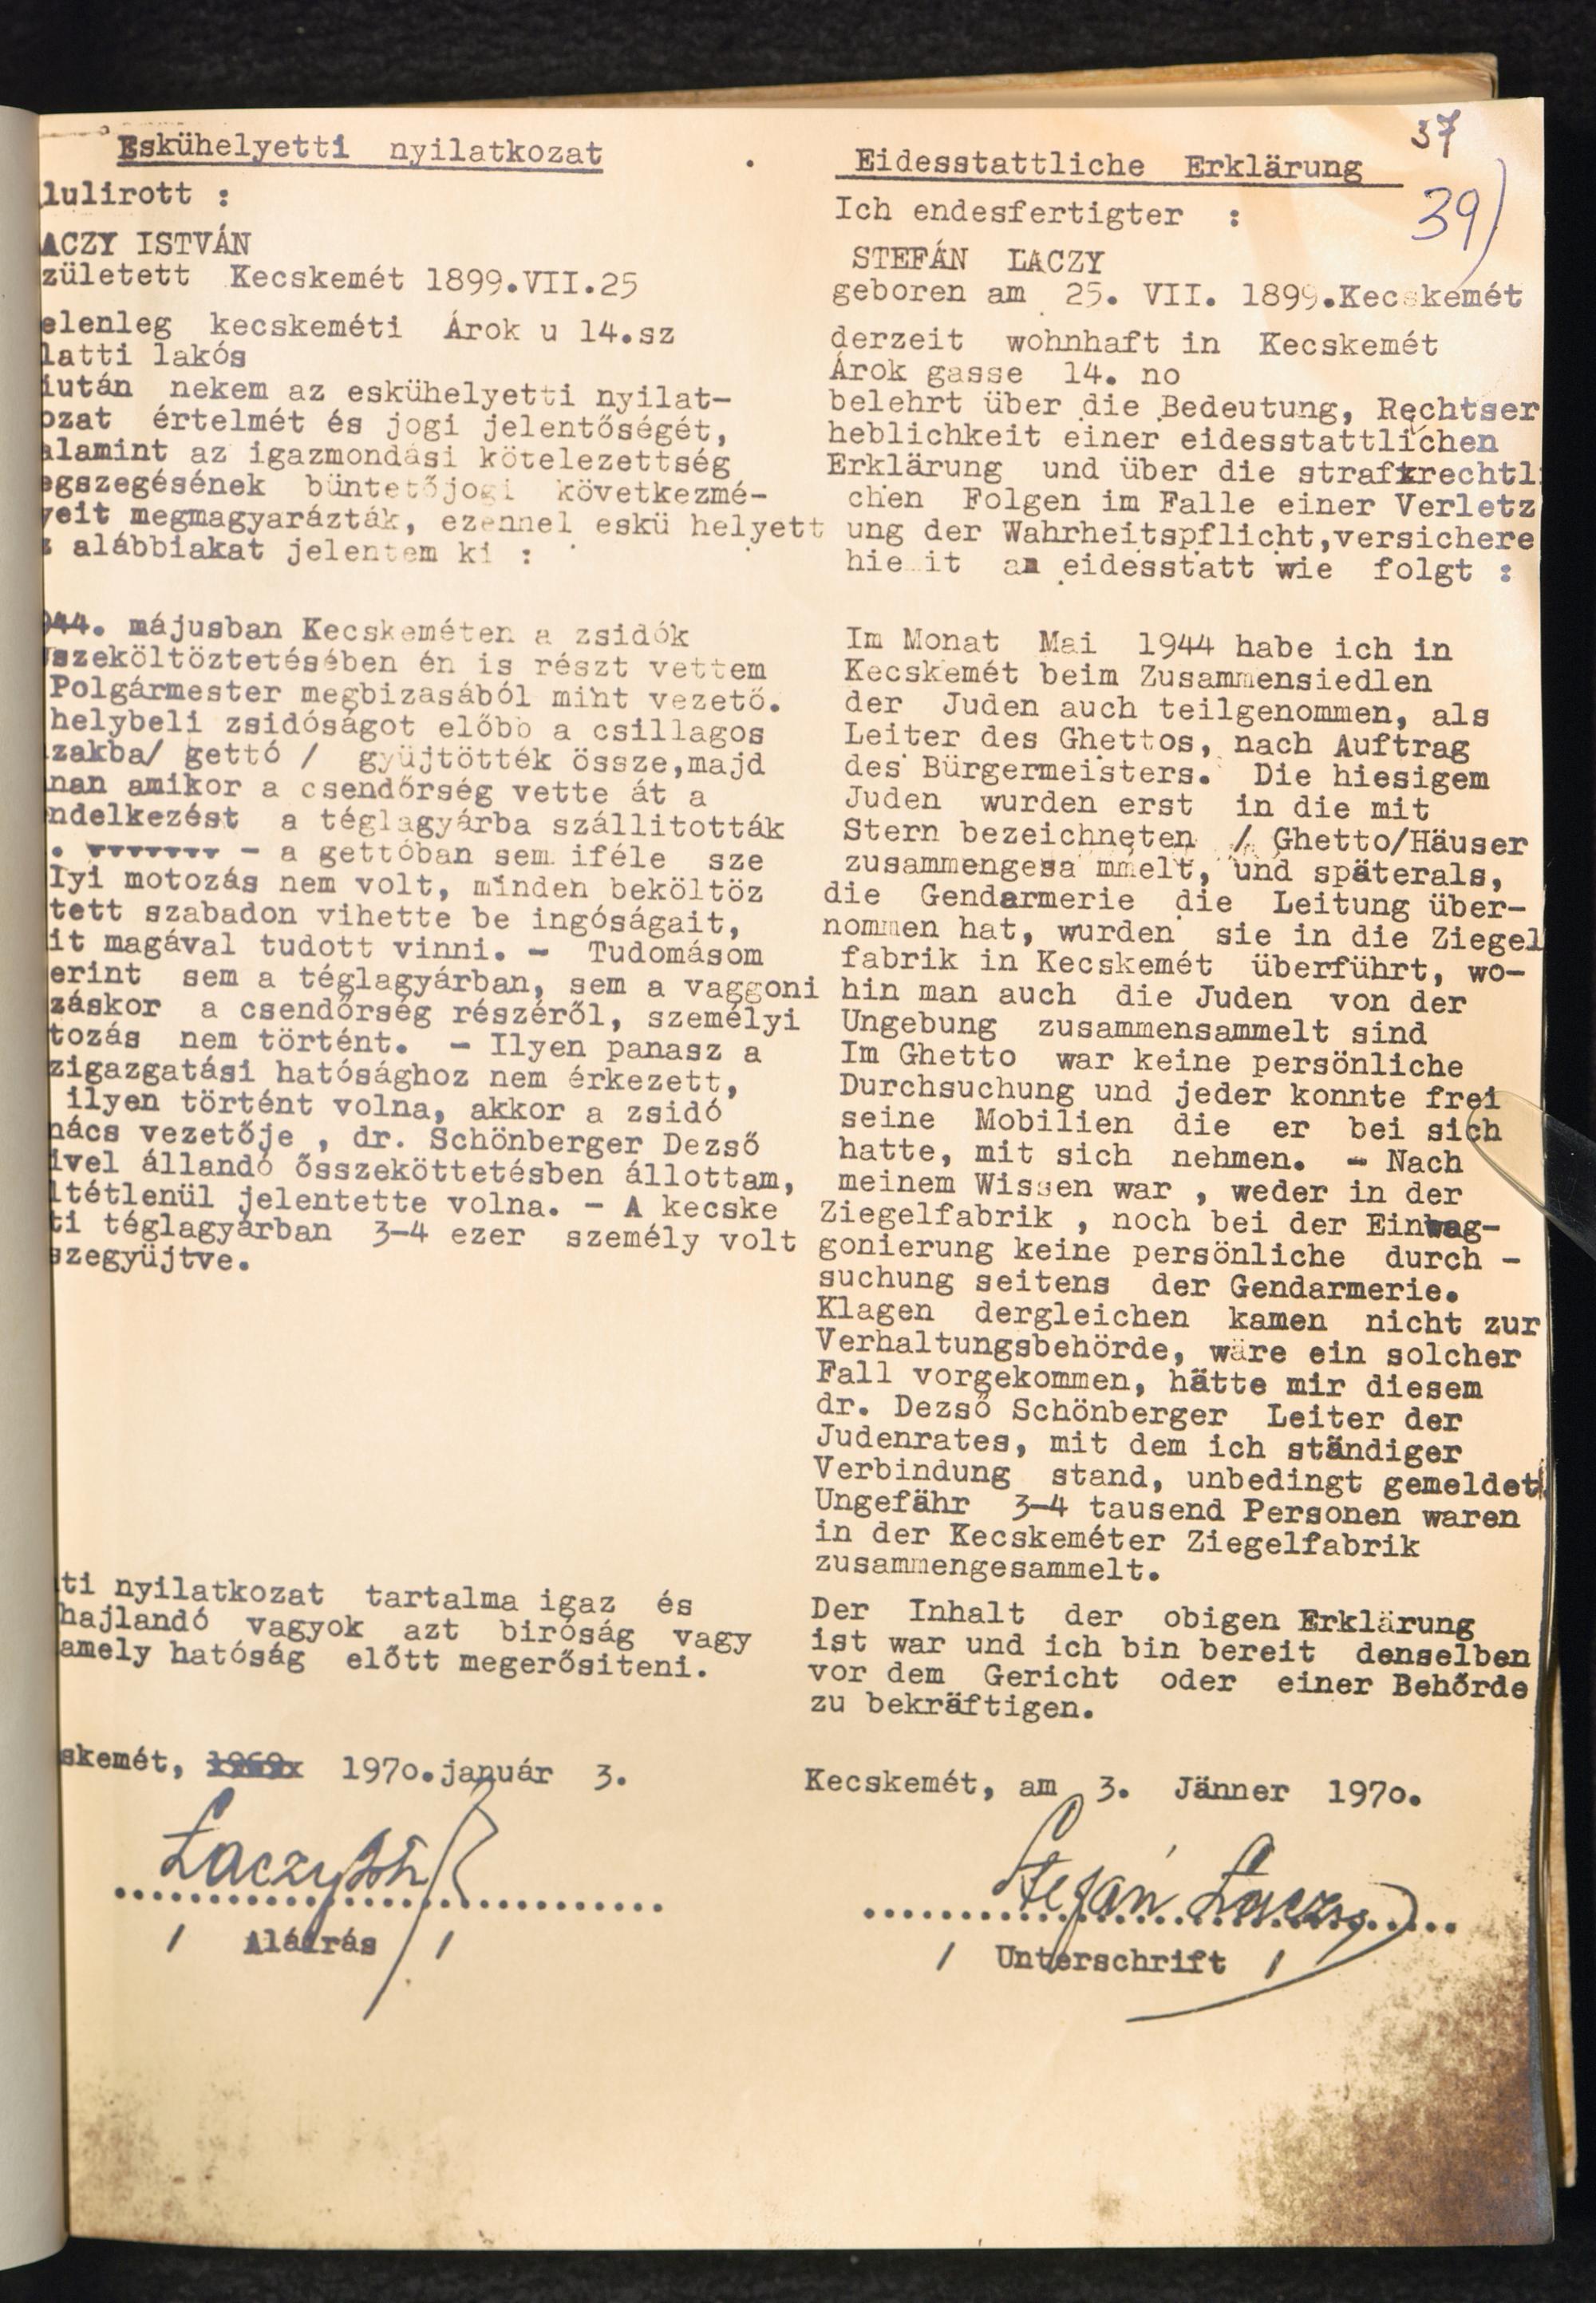 37
39)
Eskühelyetti nyilatkozat
lulirott :
ACZY ISTVÁN
zületett Kecskemét 1899.VII.25
elenleg kecskeméti Árok u 14.sz
latti lakós
iután nekem az eskühelyetti nyilat-
ozat értelmét és jogi jelentőségét,
alamint az igazmondási kötelezettség
egszegésének büntetőjogi következmé-
yeit megmagyarázták, ezennel eskü helyett
z alábbiakat jelentem ki :
944. májusban Kecskeméten a zsidók
szeköltöztetésében én is részt vettem
Polgármester megbizasából mint vezető.
helybeli zsidóságot előbb a csillagos
zakba/ gettó / gyüjtötték össze,majd
nan amikor a csendőrség vette át a
ndelkezést a téglagyárba szállitották
. - a gettóban sem iféle sze
lyi motozás nem volt, minden beköltöz
tett szabadon vihette be ingóságait,
it magával tudott vinni. - Tudomásom
erint sem a téglagyárban, sem a vaggoni
záskor a csendőrség részéről, személyi
tozás nem történt. - Ilyen panasz a
zigazgatási hatósághoz nem érkezett,
ilyen történt volna, akkor a zsidó
nács vezetője , dr. Schönberger Dezső
ivel állandó ősszeköttetésben állottam,
ltétlenül jelentette volna. - A kecske
ti téglagyárban 3-4 ezer személy volt
szegyüjtve.
ti nyilatkozat tartalma igaz és
hajlandó vagyok azt biróság vagy
amely hatóság előtt megerősiteni.
skemét, 1969x 1970.január 3.
Laczy
/ Aláirás /
Eidesstattliche Erklärung
Ich endesfertigter :
STEFÁN LACZY
geboren am 25. VII. 1899.Kecskemét
derzeit wohnhaft in Kecskemét
Árok gasse 14. no
belehrt über die Bedeutung, Rechtser
heblichkeit einer eidesstattlichen
Erklärung und über die strafxrechtli
chen Folgen im Falle einer Verletz
ung der Wahrheitspflicht,versichere
hiemit an eidesstatt wie folgt :
Im Monat Mai 1944 habe ich in
Kecskemét beim Zusammensiedlen
der Juden auch teilgenommen, als
Leiter des Ghettos, nach Auftrag
des Bürgermeisters. Die hiesigem
Juden wurden erst in die mit
Stern bezeichneten / Ghetto/Häuser
zusammengesa mmelt, und späterals,
die Gendarmerie die Leitung über-
nommen hat, wurden sie in die Ziegel
fabrik in Kecskemét überführt, wo-
hin man auch die Juden von der
Ungebung zusammensammelt sind
Im Ghetto war keine persönliche
Durchsuchung und jeder konnte frei
seine Mobilien die er bei sich
hatte, mit sich nehmen. - Nach
meinem Wissen war , weder in der
Ziegelfabrik , noch bei der Einwag-
gonierung keine persönliche durch -
suchung seitens der Gendarmerie.
Klagen dergleichen kamen nicht zur
Verhaltungsbehörde, wäre ein solcher
Fall vorgekommen, hätte mir diesem
dr. Dezső Schönberger Leiter der
Judenrates, mit dem ich ständiger
Verbindung stand, unbedingt gemeldet
Ungefähr 3-4 tausend Personen waren
in der Kecskeméter Ziegelfabrik
zusammengesammelt.
Der Inhalt der obigen Erklärung
ist war und ich bin bereit denselben
vor dem Gericht oder einer Behőrde
zu bekräftigen.
Kecskemét, am 3. Jänner 1970.
Stefán Laczy
/ Unterschrift /